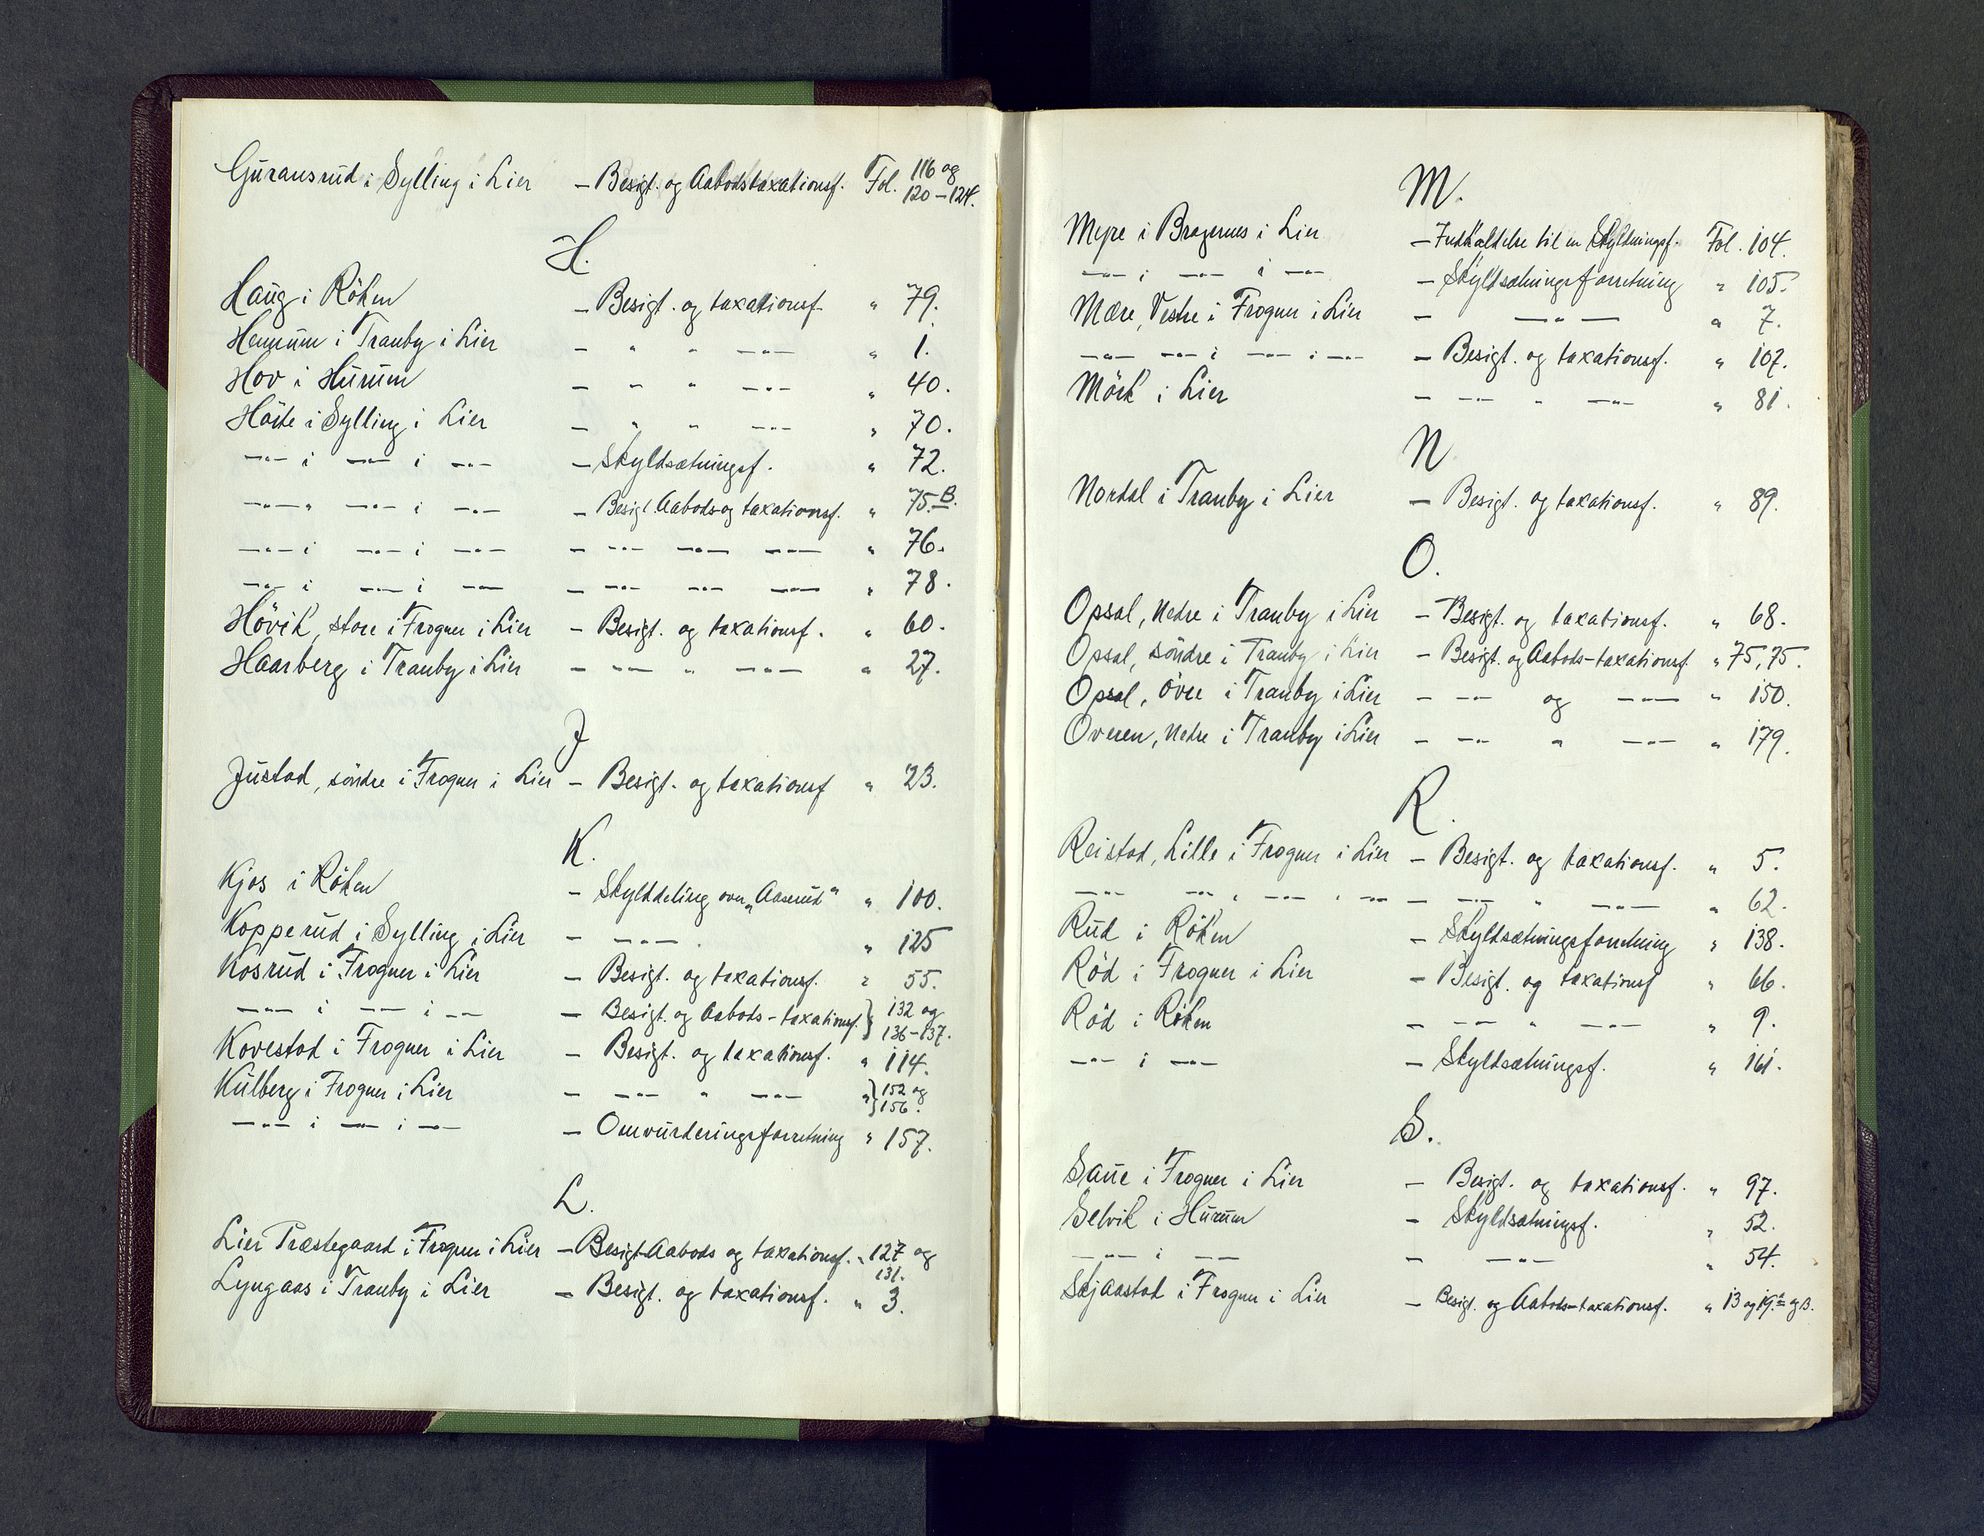 Guransrud i Sylling i Lier – Besigt. og Aabodstaxationsf. Fol. 116 og 120–124.
H.
Haug i Röken – Besigt. og taxationsf. " 79.
Hennum i Tranby i Lier – " " —"— " 1.
Hov i Hurum – " " —"— " 40.
Höite i Sylling i Lier – " " —"— " 70.
—"— i —"— i —"— – Skyldsætningsf. " 72.
—"— " —"— i —"— – Besigt. Aabods-og taxationsf. " 75.B.
—"— i —"— i —"— – —"— —"— —"— " 76.
—"— i —"— i —"— – —"— —"— —"— " 78.
Hövik, store i Frogner i Lier – Besigt. og taxationsf. " 60.
Haarberg i Tranby i Lier – —"— " —"— " 27.
J
Justad, söndre i Frogner i Lier – Besigt. og taxationsf " 23.
K.
Kjos i Röken – Skylddeling over „Aaserud" " 100.
Kopperud i Sylling i Lier – —"—. " 125
Kosrud i Frogner i Lier – Besigt. og taxationsf. " 55.
—"— i —"— i —"— – Besigt. og Aabods-taxationsf. } 132 og 136–137.
Kovestad i Frogner i Lier – Besigt. og taxationsf. " 114.
Kulberg i Frogner i Lier – —"— " —"— " } 152 og 156.
—"— i —"— i —"— – Omvurderingsforretning " 157.
L.
Lier Præstegaard i Frogner i Lier – Besigt-Aabods og taxationsf. " 127 og 131.
Lyngaas i Tranby i Lier – Besigt. og taxationsf. " 3.
M.
Myre i Bragernes i Lier – Indkaldelse til en Skyldningsf. Fol. 104.
—"— i —"— i —"— – Skyldsætningsforretning " 105.
Mære, Vestre i Frogner i Lier – —"— " 7.
—"— —"— i —"— i —"— – Besigt. og taxationsf. " 107.
Mörk i Lier – —"— " —"— " 81.
N
Nordal i Tranby i Lier – Besigt. og taxationsf. " 89.
O.
Opsal, Nedre i Tranby i Lier – Besigt. og taxationsf. " 68.
Opsal, söndre i Tranby i Lier – Besigt. og Aabods-taxationsf. " 75,75.
Opsal, övre i Tranby i Lier – —"— og —"— " 150.
Overen, Nedre i Tranby i Lier – —"— " —"— " 179.
R.
Reistad, Lille i Frogner i Lier – Besigt. og taxationsf. " 5.
—"— —"— " —"— " —"— – —"— " —"— " 62.
Rud i Röken – Skyldsætningsforretning " 138.
Röd i Frogner i Lier – Besigt. og taxationsf " 66.
Röd i Röken – —"— " —"— " 9.
—"— i —"— – Skyldsætningsf. " 161.
S.
Saue i Frogner i Lier – Besigt. og taxationsf. " 97.
Selvik i Hurum – Skyldsætningsf. " 52.
—"— i —"— – —"— " 54.
Skjaastad i Frogner i Lier – Besigt. og Aabods-taxationsf. " 13 og 19.a og B.